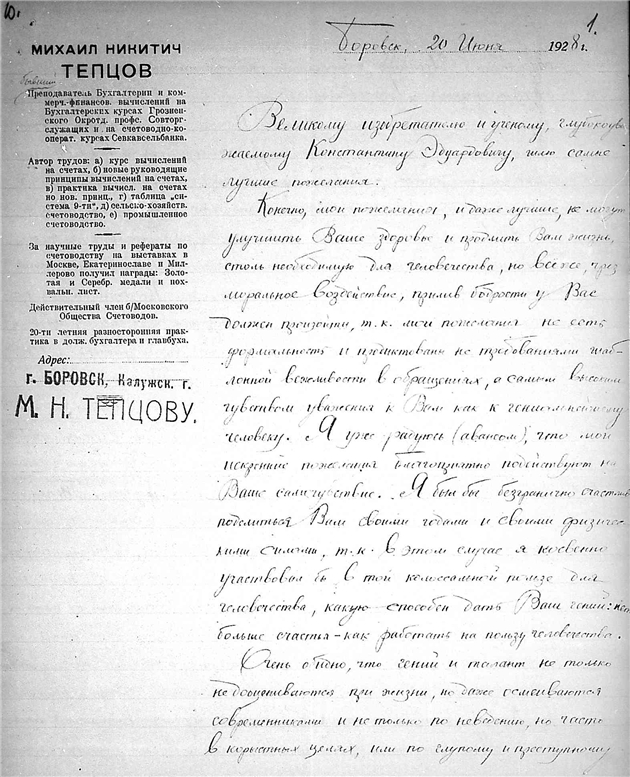 10.
1.
МИХАИЛ НИКИТИЧ
ТЕПЦОВ
Бывший
Преподаватель Бухгалтерии и ком-
мерч.-финансов. вычислений на
Бухгалтерских курсах Грознен-
ского Окротд. профс. Совторг-
служащих и на счетоводно-ко-
операт. курсах Севкавсельбанка.
Автор трудов: а) курс вычислений
на счетах, б) новые руководящие
принципы вычислений на счетах,
в) практика вычисл. на счетах
по нов. принц., г) таблица „си-
стема 9-ти“, д) сельско-хозяйств.
счетоводство, е) промышленное
счетоводство.
За научные труды и рефераты по
счетоводству на выставках в
Москве, Екатеринославе и Мил-
лерово получил награды: Золо-
тая и Серебр. медали и пох-
вальн. лист.
Действительный член б/Московского
Общества Счетоводов.
20-ти летняя разносторонняя прак-
тика в долж. бухгалтера и главбуха.
Адрес:
г. БОРОВСК, Калужск. г.
М. Н. ТЕПЦОВУ.
Боровск, 20 Июня 1928 г.
Великому изобретателю и ученому, глубокоува-
жаемому Константину Эдуардовичу, шлю самые
лучшие пожелания.
Конечно, мои пожелания, и даже лучшие, не могут
улучшить Ваше здоровье и продлить Вам жизнь,
столь необходимую для человечества, но все же, чрез
моральное воздействие, прилив бодрости у Вас
должен произойти, т. к. мои пожелания не есть
формальность и продиктованы не требованиями шаб-
лонной вежливости в обращениях, а самым высоким
чувством уважения к Вам как к гениальнейшему
человеку. Я уже радуюсь (авансом), что мои
искренние пожелания благоприятно подействуют на
Ваше самочувствие. Я был бы безгранично счастлив
поделиться Вам своими годами и своими физичес-
кими силами, т. к. в этом случае я косвенно
участвовал бы в той колоссальной пользе для
человечества, какую способен дать Ваш гений: нет
больше счастья - как работать на пользу человечества.
Очень обидно, что гений и талант не только
не дооцениваются при жизни, но даже осмеиваются
современниками и не только по неведению, но часто
в корыстных целях, или по глупому и преступному